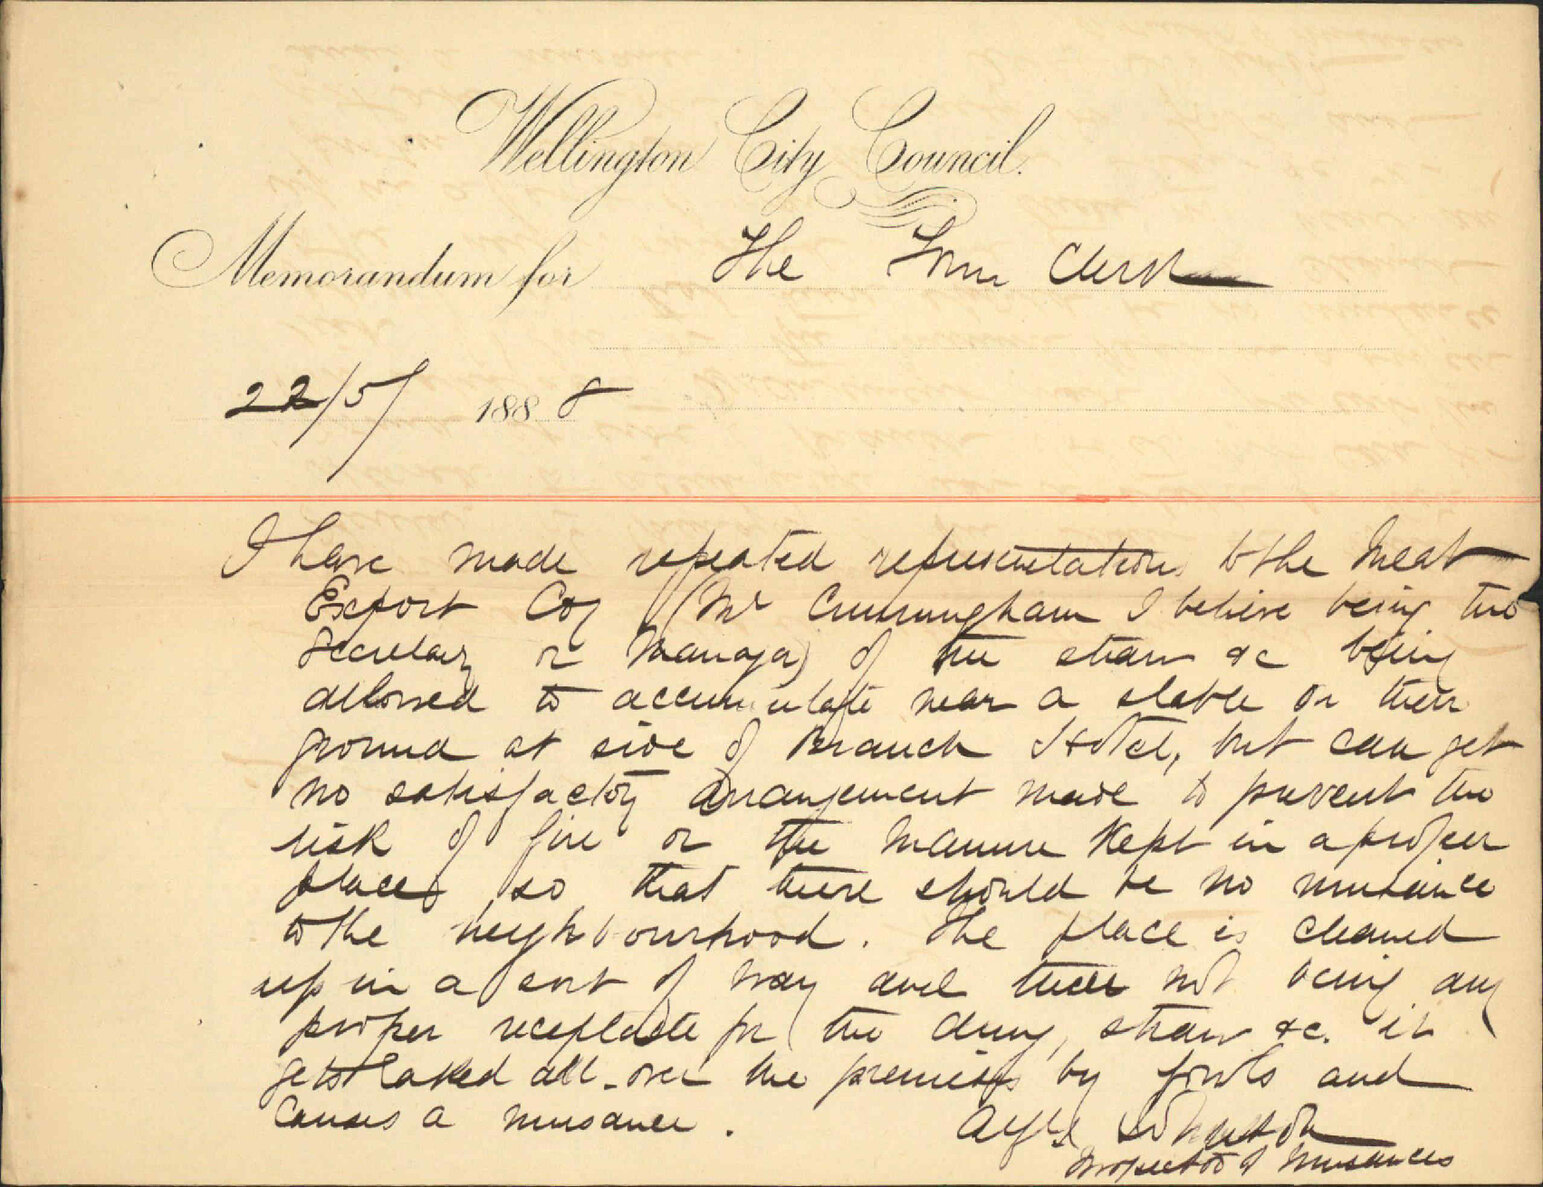 Wellington City Council.
Memorandum for The Town Clerk
22/5/ 1888
I have made repeated representations to the Meat
Export Coy (Mr Cunningham I believe being the
Secretary or Manager) of the straw &c being
allowed to accumulate near a stable on their
ground at side of Branch Hotel, but can get
no satisfactory arrangement made to prevent the
risk of fire or the manure kept in a proper
place so that there should be no nuisance
to the neighbourhood. The place is cleaned
up in a sort of way and there not being any
proper receptacle for the dung, straw &c. it
gets raked all over the premises by fowls and
causes a nuisance.
Inspector of Nuisances